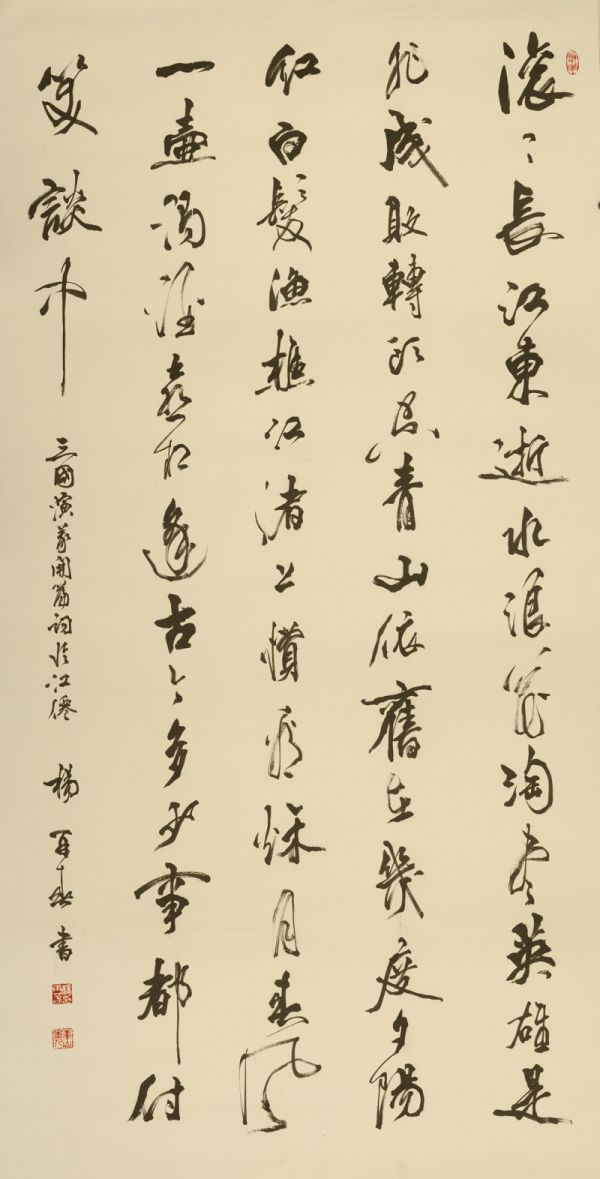 滚〻長江東逝水浪花淘盡英雄是
非成敗轉頭空青山依舊在幾度夕陽
紅白髮漁樵江渚上慣看秋月春風
一壺濁酒喜相逢古今多少事都付
笑談中
三國演義開篇詞臨江僊 楊再春書